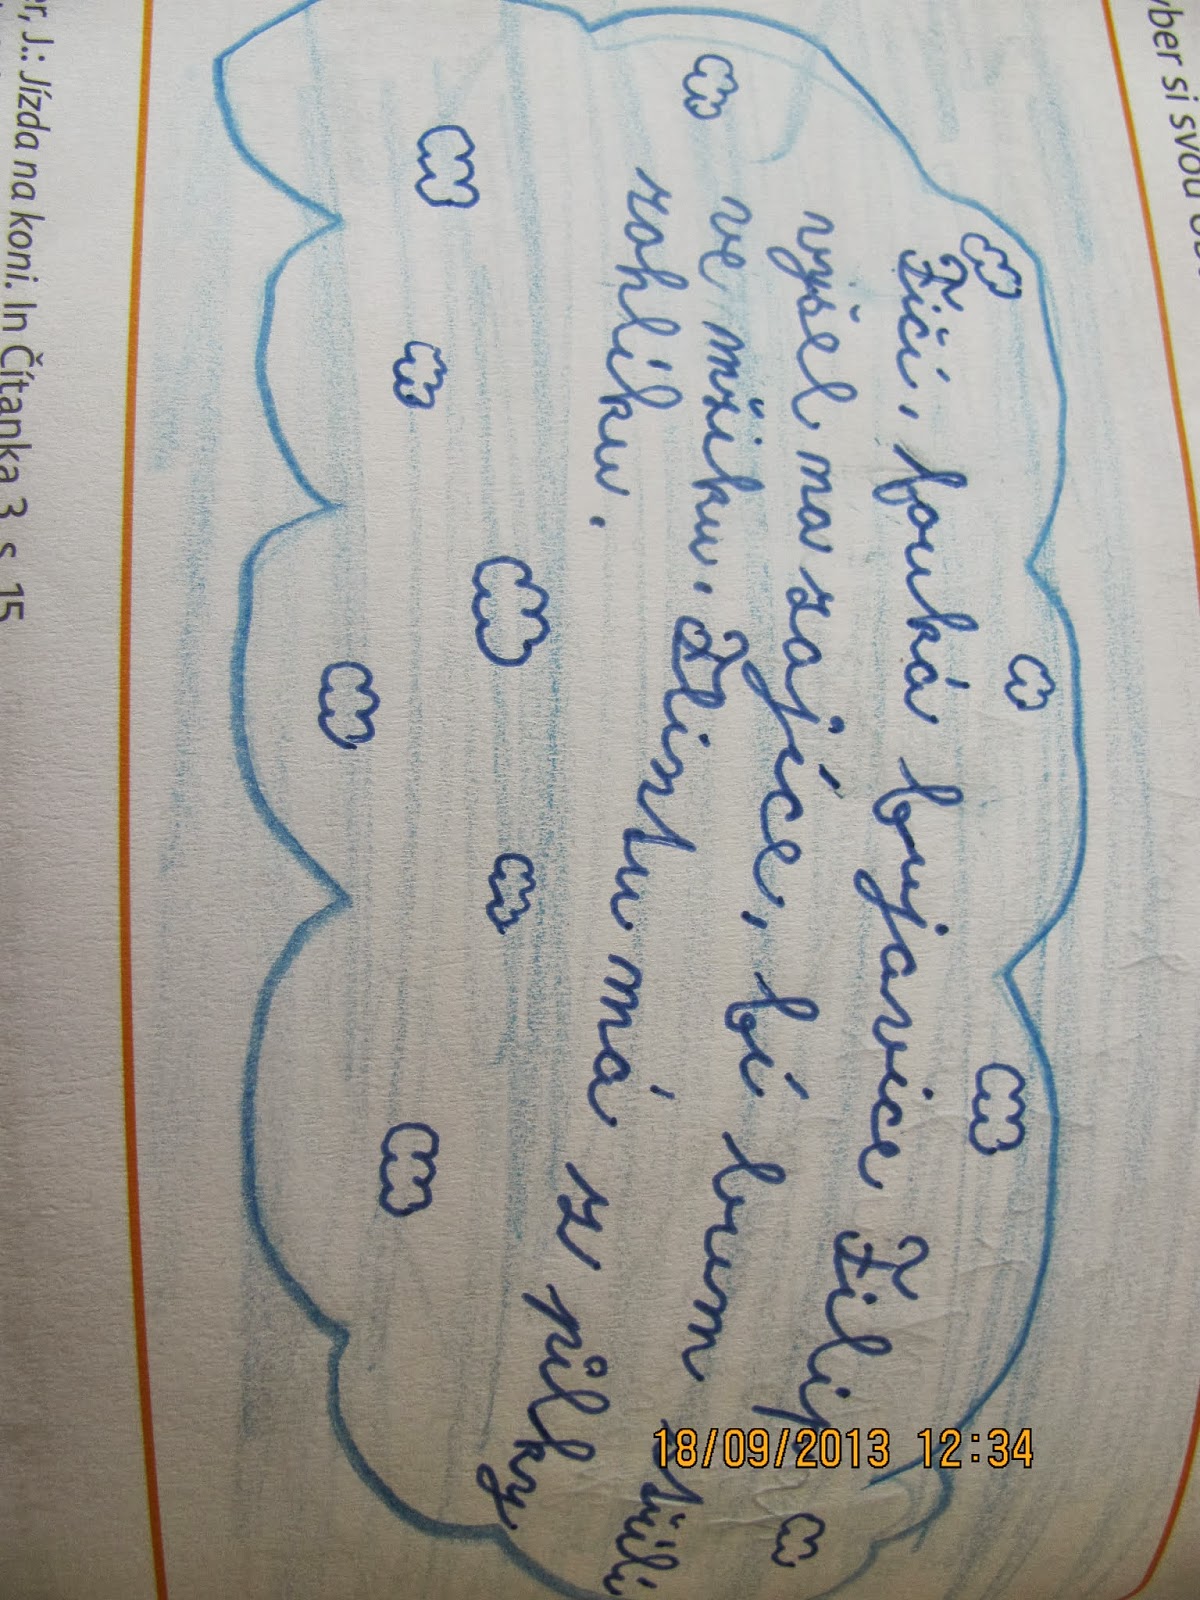 yber si svou
Fičí, fouká bujavice Filip
vyšel na zajíce, bí bum střílí
ve mžiku. Flintu má z půlky
rohlíku.
er, J.: Jízda na koni. In Čítanka 3, s. 15
18/09/2013 12:34